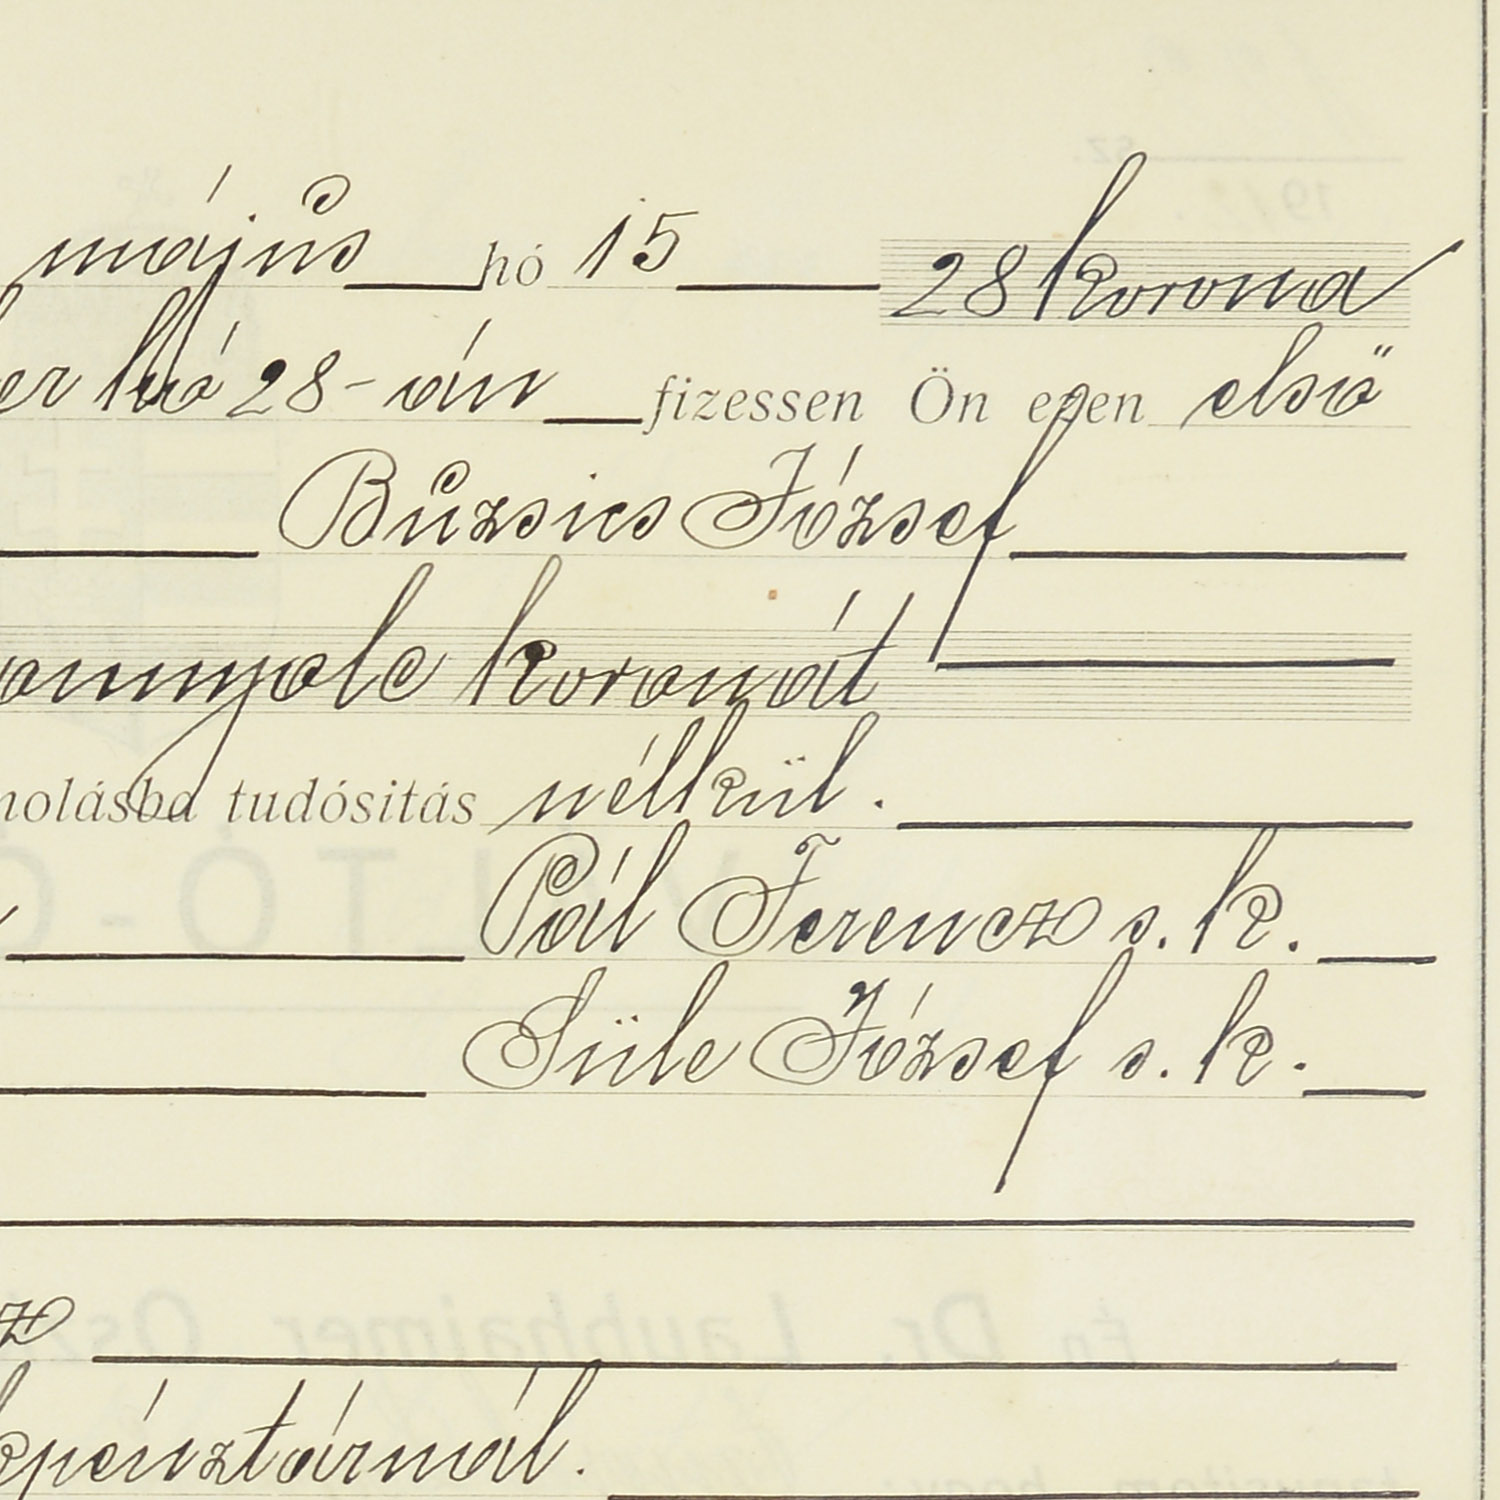 május hó 15 28 korona
er hó 28-án fizessen Ön ezen első
Buzsics József
annyolc koronát
molásba tudósitás nélkül.
Pál Ferencz s. k.
Süle József s. k.
z
kpénztárnál.